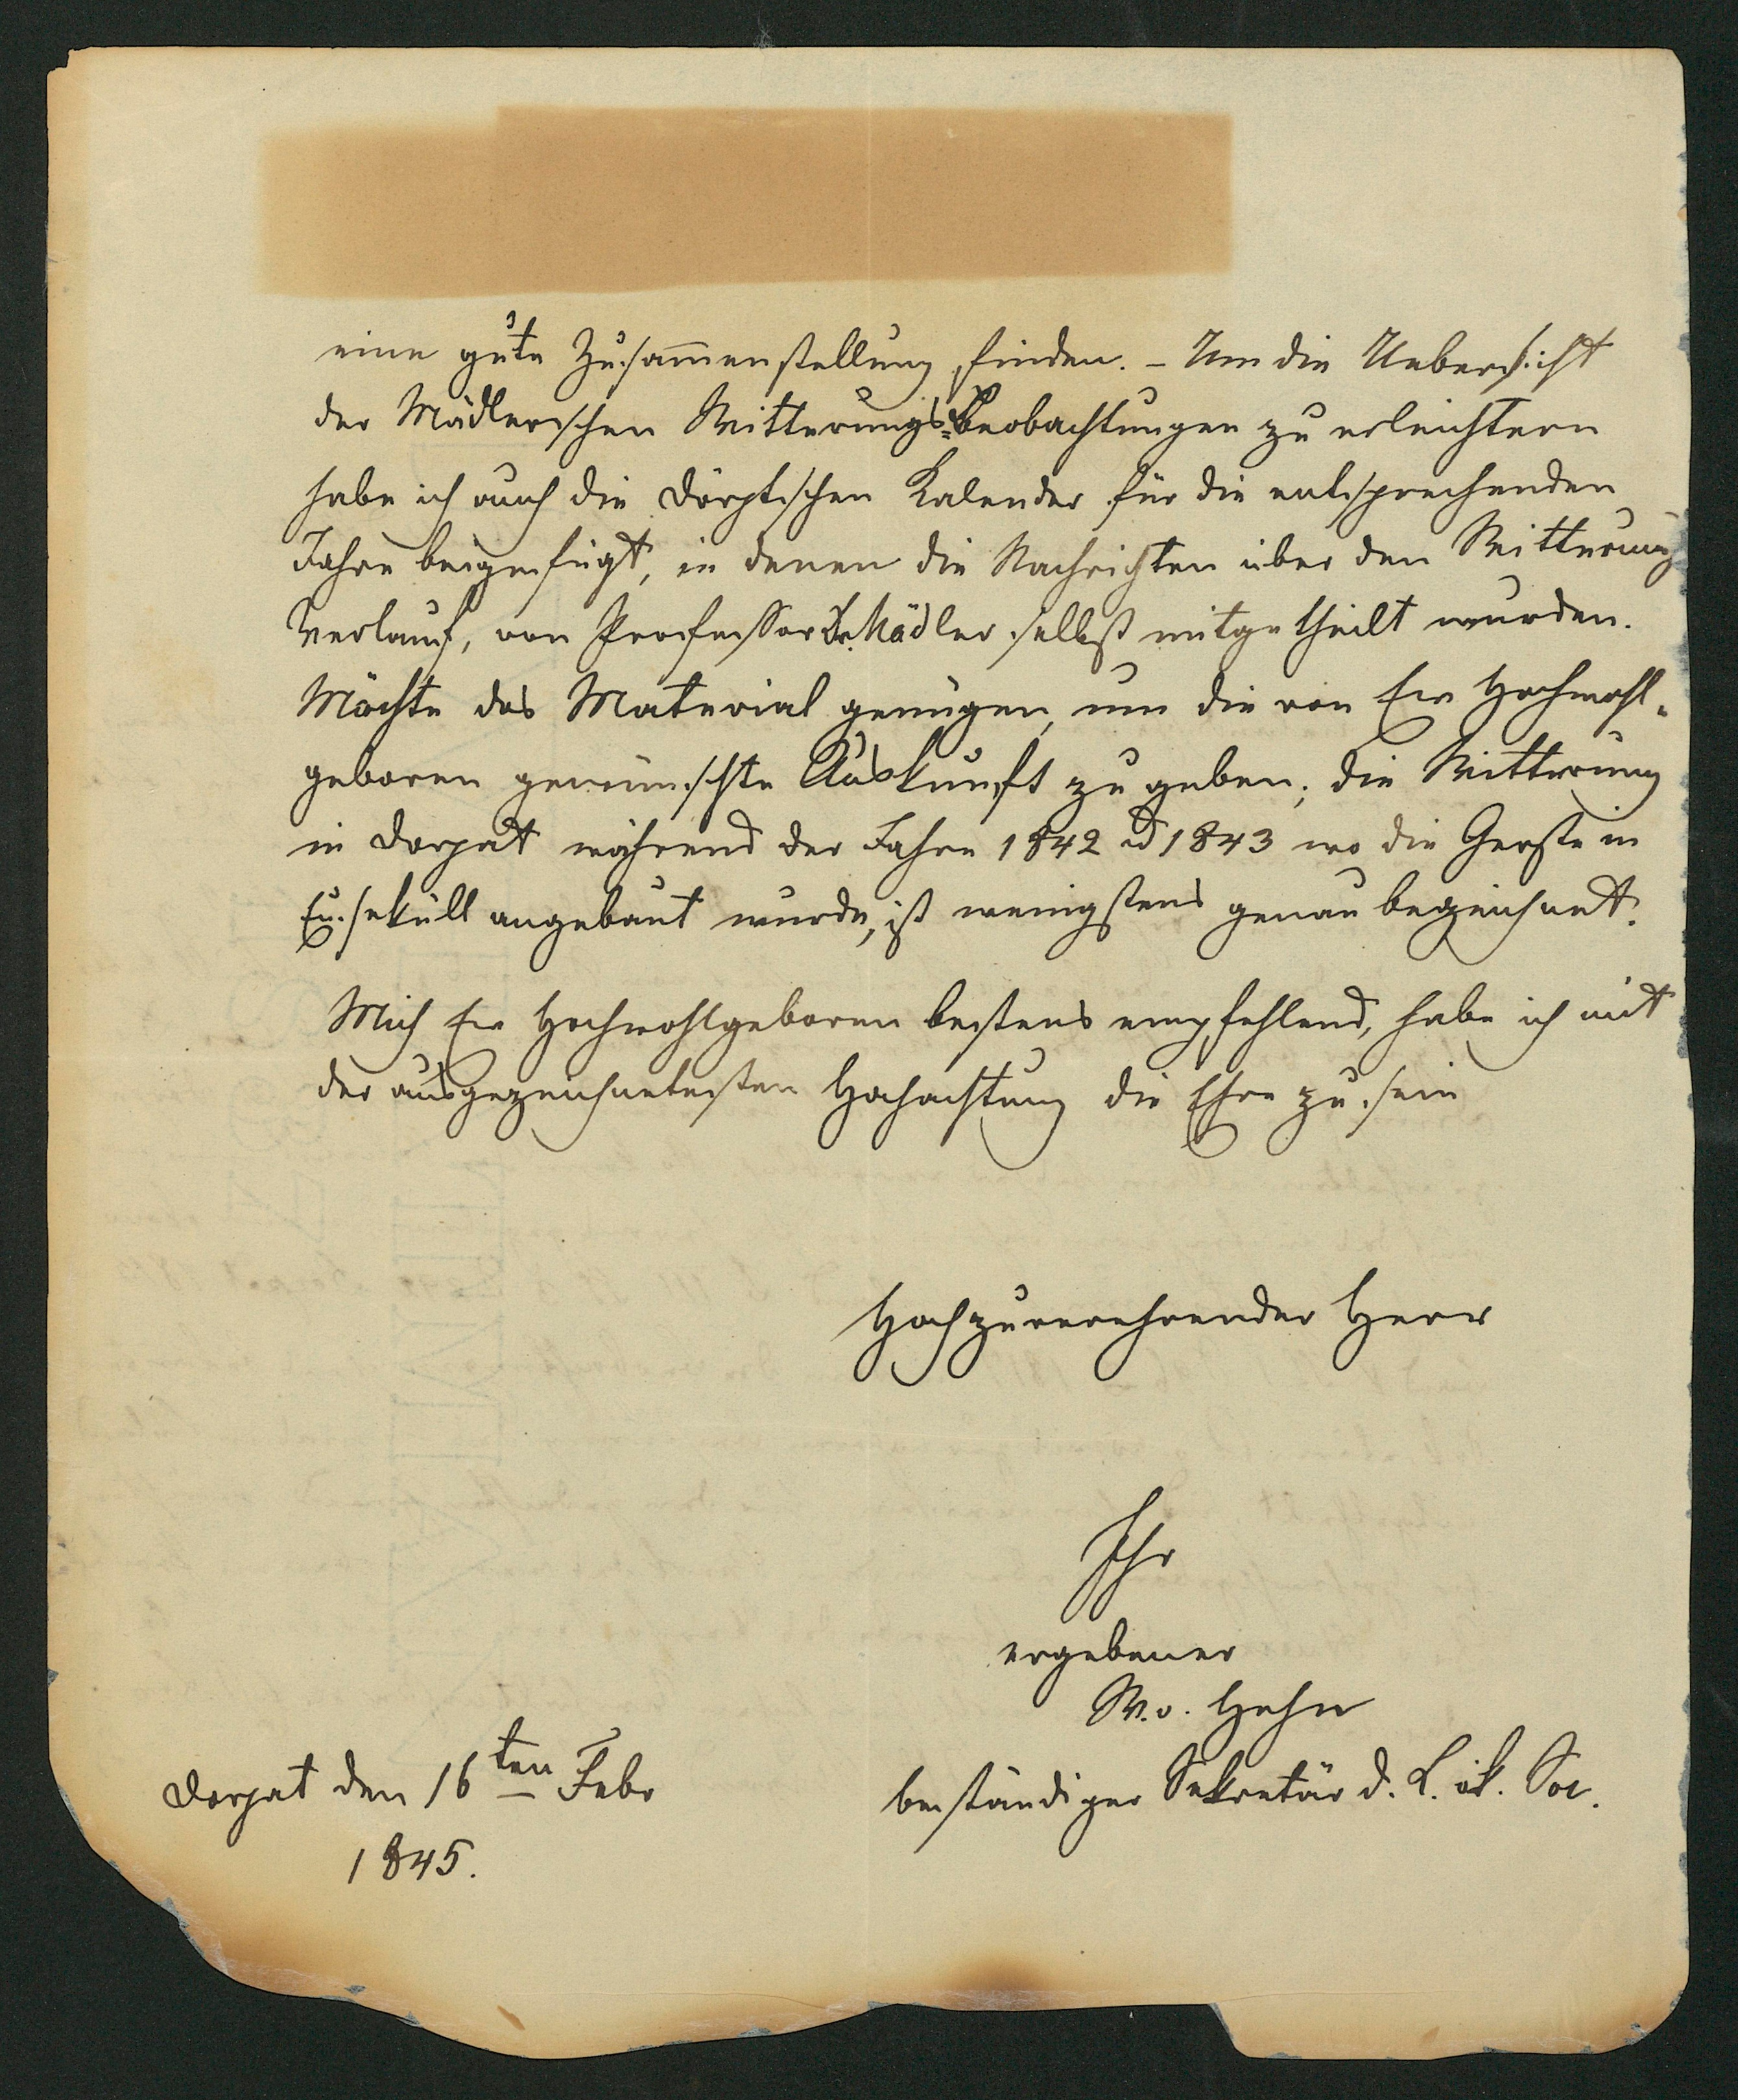 eine gute Zusammenstellung finden. – Um die Uebersicht
der Mädlerschen Witterungs-Beobachtungen zu erleichtern
habe ich auch die dörptschen Kalender für die entsprechenden
Jahre beigefügt, in denen die Nachrichten über den Witterung
Verlauf, von Professor Dr. Mädler selbst mitgetheilt wurden.
Möchte das Material genügen, um die von Ew Hochwohl-
geboren gewünschte Auskunft zu geben; die Witterung
in Dorpat während der Jahre 1842 u 1843 wo die Gerste in
Eusekull angebaut wurde, ist wenigstens genau bezeichnet.
Mich Ew Hochwohlgeboren bestens empfehlend, habe ich mit
der ausgezeichnetesten Hochachtung die Ehre zu sein
Hochzuverehrender Herr
Ihr
ergebener
W. v. Hehn
beständiger Sekretär d. L. ök. Soc.
Dorpat den 16ten Febr
1845.